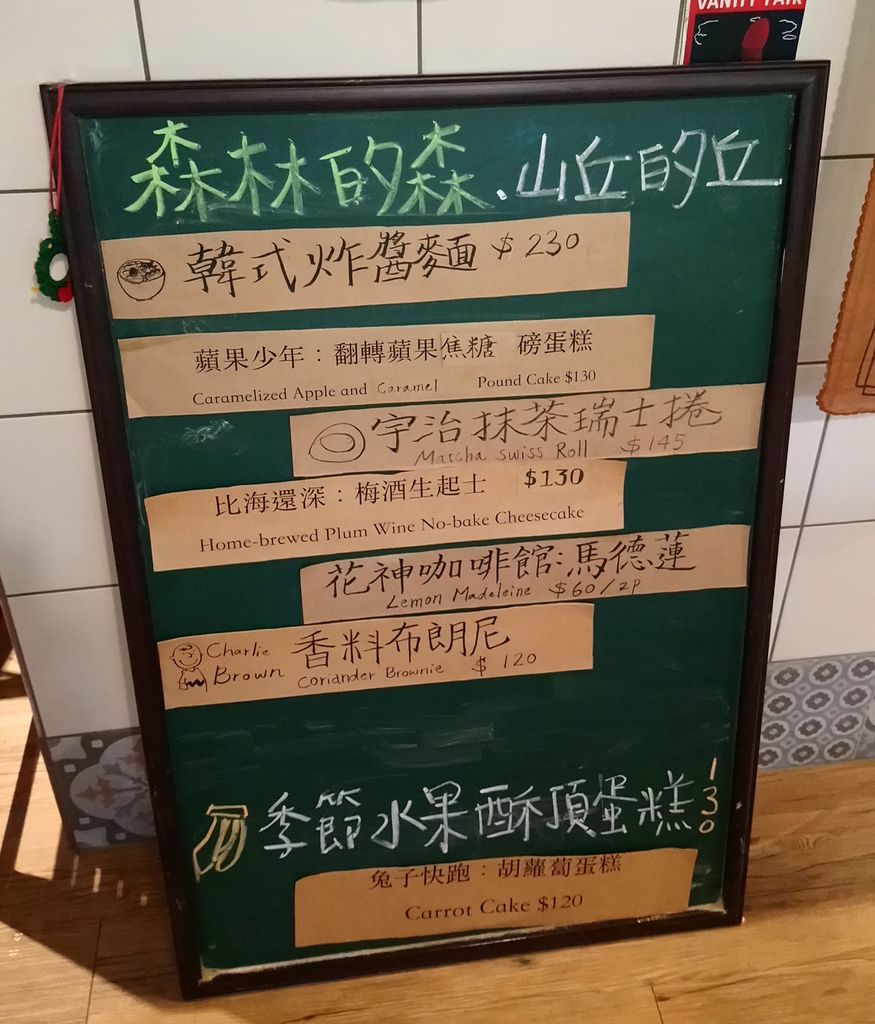 VANITY FAIR
森林的森.山丘的丘
韓式炸醬麵 $230
蘋果少年：翻轉蘋果焦糖 磅蛋糕
Caramelized Apple and Caramel Pound Cake $130
宇治抹茶瑞士捲
Matcha Swiss Roll $145
比海還深：梅酒生起士 $130
Home-brewed Plum Wine No-bake Cheesecake
花神咖啡館:馬德蓮
Lemon Madeleine $60/2P
Charlie Brown 香料布朗尼
Coriander Brownie $120
季節水果酥頂蛋糕 130
兔子快跑：胡蘿蔔蛋糕
Carrot Cake $120